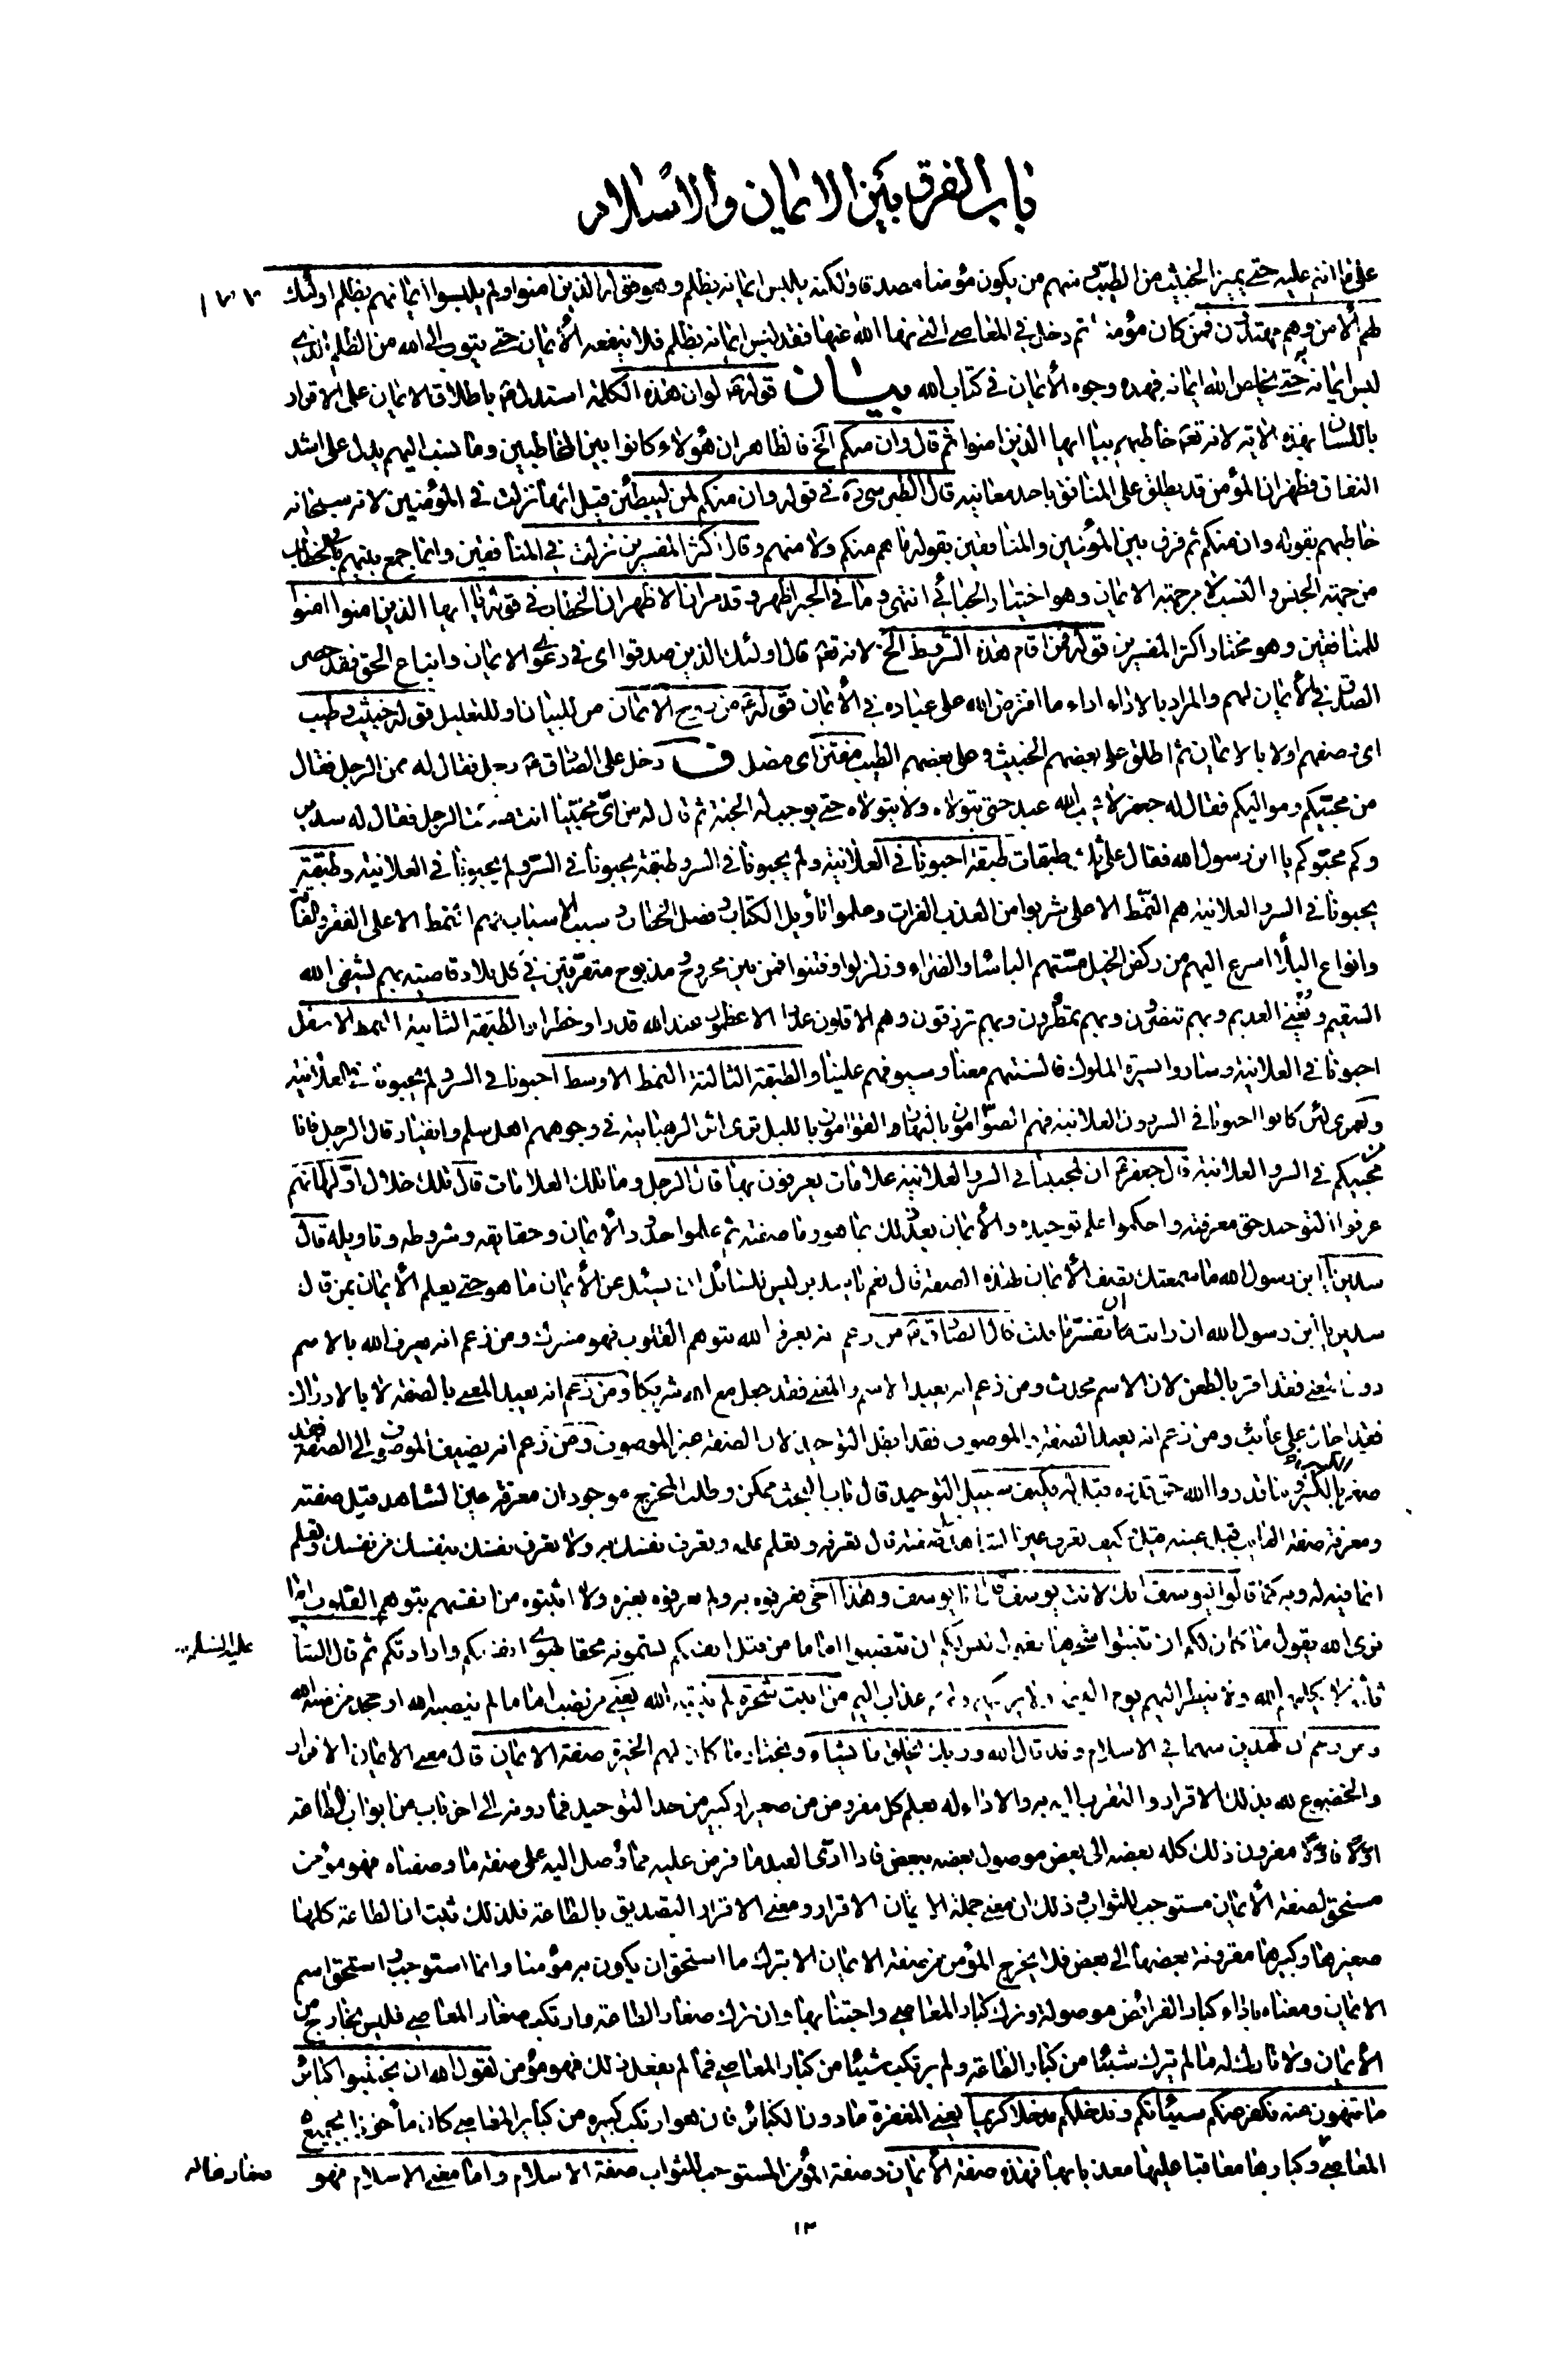 باب الفرق بين الايمان والاسلام
على ما انتم عليه حتى يميز الخبيث من الطيب ومنهم من يكون مؤمنا مصدقا ولكنه يلبس ايمانه بظلم وهو قوله الذين امنوا ولم يلبسوا ايمانهم بظلم اولئك
١٧٧
لهم الامن وهم مهتدون فمن كان مؤمنا ثم دخل في المعاصي التي نهى الله عنها فقد لبس ايمانه بظلم فلا ينفعه الايمان حتى يتوب الى الله من الظلم الذي
لبس ايمانه به حتى يخلص الله ايمانه فهذه وجوه الايمان في كتاب الله بيان قوله ع لو ان هذه الكلمة استدل ع باطلاق الايمان على الاقرار
باللسان بهذه الاية لانه تعه خاطبهم بيا ايها الذين امنوا ثم قال وان منكم الخ فالظاهر ان هؤلاء كانوا بين المخاطبين وما نسب اليهم يدل على اشد
النفاق فظهر ان المؤمن قد يطلق على المنافق باحد معانيه قال الطبرسي ره في قوله وان منكم لمن ليبطئن قيل انها نزلت في المؤمنين لانه سبحانه
خاطبهم بقوله وان منكم ثم فرق بين المؤمنين والمنافقين بقوله ما هم منكم ولا منهم وقال اكثر المفسرين نزلت في المنافقين وانما جمع بينهم في الخطاب
من جهة الجنس والنسب لا من جهة الايمان وهو اختيار الجبائي انتهى وما في الخبر اظهر وقد مر ان الاظهر ان الخطاب في قوله يا ايها الذين امنوا امنوا
للمنافقين وهو مختار اكثر المفسرين قوله فمن اقام هذه الشروط الخ لانه تعه قال اولئك الذين صدقوا اى في دعوى الايمان واتباع الحق فقد حصر
الصدق في الايمان لهم والمراد بالاداء اداء ما افترض الله على عباده في الايمان قوله ع من الايمان من للبيان او للتعليل قوله خبيث وطيب
اى وصفهم اولا بالايمان ثم اطلق على بعضهم الخبيث وعلى بعضهم الطيب مفتن اى مضل ف دخل على الصادق ع رجل فقال له ممن الرجل فقال
من محبيكم ومواليكم فقال له جعفر لا يحب الله عبد حتى يتولاه ولا يتولاه حتى يوجب له الجنة ثم قال له من اى محبينا انت فسكت الرجل فقال له سدير
وكم محبوكم يا ابن رسول الله فقال على ثلاث طبقات طبقة احبونا في العلانية ولم يحبونا في السر وطبقة يحبونا في السر ولم يحبونا في العلانية وطبقة
يحبونا في السر والعلانية هم النمط الاعلى شربوا من العذب الفرات وعلموا تأويل الكتاب وفصل الخطاب وسبب الاسباب فهم النمط الاعلى الفقر والفاقة
وانواع البلاء اسرع اليهم من ركض الخيل مستهم البأساء والضراء وزلزلوا وفتنوا فمن بين مجروح ومذبوح متفرقين في كل بلاد قاصية بهم يشفى الله
السقيم ويغنى العديم وبهم تنصرون وبهم تمطرون وبهم ترزقون وهم الاقلون عددا الاعظمون عند الله قدرا وخطرا والطبقة الثانية النمط الاسفل
احبونا في العلانية وساروا بسيرة الملوك فالسنتهم معنا وسيوفهم علينا والطبقة الثالثة النمط الاوسط احبونا في السر ولم يحبونا في العلانية
ولعمرى لئن كانوا احبونا في السر دون العلانية فهم الصوامون بالنهار القوامون بالليل ترى اثر الرهبانية في وجوههم اهل سلم وانقياد قال الرجل فانا
من محبيكم في السر والعلانية قال جعفر ع ان لمحبينا في السر والعلانية علامات يعرفون بها قال الرجل وما تلك العلامات قال تلك خلال اولها انهم
عرفوا التوحيد حق معرفته واحكموا علم توحيده والايمان بعد ذلك بما هو وما صفته ثم علموا حدود الايمان وحقايقه وشروطه وتاويله قال
سدير يا ابن رسول الله ما سمعتك تصف الايمان بهذه الصفة قال نعم يا سدير ليس للسائل ان يسئل عن الايمان ما هو حتى يعلم الايمان بمن قال
سدير يا ابن رسول الله ان رايت ان تفسر ما قلت قال الصادق ع من زعم انه يعرف الله بتوهم القلوب فهو مشرك ومن زعم انه يعرف الله بالاسم
دون المعنى فقد اقر بالطعن لان الاسم محدث ومن زعم انه يعبد الاسم والمعنى فقد جعل مع الله شريكا ومن زعم انه يعبد المعنى بالصفة لا بالادراك
فقد احال على غائب ومن زعم انه يعبد الصفة والموصوف فقد ابطل التوحيد لان الصفة غير الموصوف ومن زعم انه يضيف الموصوف الى الصفة فقد
صغر بالكبير وما قدروا الله حق قدره قيل له فكيف سبيل التوحيد قال باب البحث ممكن وطلب المخرج موجود ان معرفة عين الشاهد قبل صفته
ومعرفة صفة الغايب قبل عينه قيل وكيف تعرف عين الشاهد قبل صفته قال تعرفه وتعلم علمه وتعرف نفسك به ولا تعرف نفسك بنفسك من نفسك وتعلم
ان ما فيه له وبه كما قالوا ليوسف انك لانت يوسف قال انا يوسف وهذا اخى فعرفوه به ولم يعرفوه بغيره ولا اثبتوه من انفسهم بتوهم القلوب اما
ترى الله يقول ما كان لكم ان تنبتوا شجرها يقول ليس لكم ان تنصبوا اماما من قبل انفسكم تسمونه محقا بهوى انفسكم وارادتكم ثم قال الصادق
عليه السلام
ثلاثة لا يكلمهم الله ولا ينظر اليهم يوم القيمة ولا يزكيهم ولهم عذاب اليم من انبت شجرة لم ينبته الله يعنى من نصب اماما لم ينصبه الله او جحد من نصبه الله
ومن زعم ان لهذين سهما في الاسلام وقد قال الله وربك يخلق ما يشاء ويختار ما كان لهم الخيرة صفة الايمان قال معنى الايمان الاقرار
والخضوع لله بذلك الاقرار والتقرب اليه به والاداء له بعلم كل مفروض من صغير او كبير من حد التوحيد فما دونه الى اخر باب من ابواب الطاعة
اولا فاولا مقرون ذلك كله بعضه الى بعض موصول بعضه ببعض فاذا ادى العبد ما فرض عليه مما وصل اليه على صفة ما وصفناه فهو مؤمن
مستحق لصفة الايمان مستوجب للثواب وذلك ان معنى جملة الايمان الاقرار ومعنى الاقرار التصديق بالطاعة فلذلك ثبت ان الطاعة كلها
صغيرها وكبيرها مقرونة بعضها الى بعض فلا يخرج المؤمن من صفة الايمان الا بترك ما استحق ان يكون به مؤمنا وانما استوجب واستحق اسم
الايمان ومعناه باداء كبار الفرائض موصولة وترك كبار المعاصي واجتنابها وان ترك صغار الطاعة وارتكب صغار المعاصي فليس بخارج من
الايمان ولا تارك له ما لم يترك شيئا من كبار الطاعة ولم يرتكب شيئا من كبار المعاصي فما لم يفعل ذلك فهو مؤمن لقول الله ان تجتنبوا كبائر
ما تنهون عنه نكفر عنكم سيئاتكم وندخلكم مدخلا كريما يعنى المغفرة ما دون الكبائر فان هو ارتكب كبيرة من كباير المعاصي كان مأخوذا بجميع
المعاصي وكبارها معاقبا عليها معذبا بها فهذه صفة الايمان وصفة المؤمن المستوجب للثواب صفة الاسلام واما معنى الاسلام فهو
صغارها
١٣